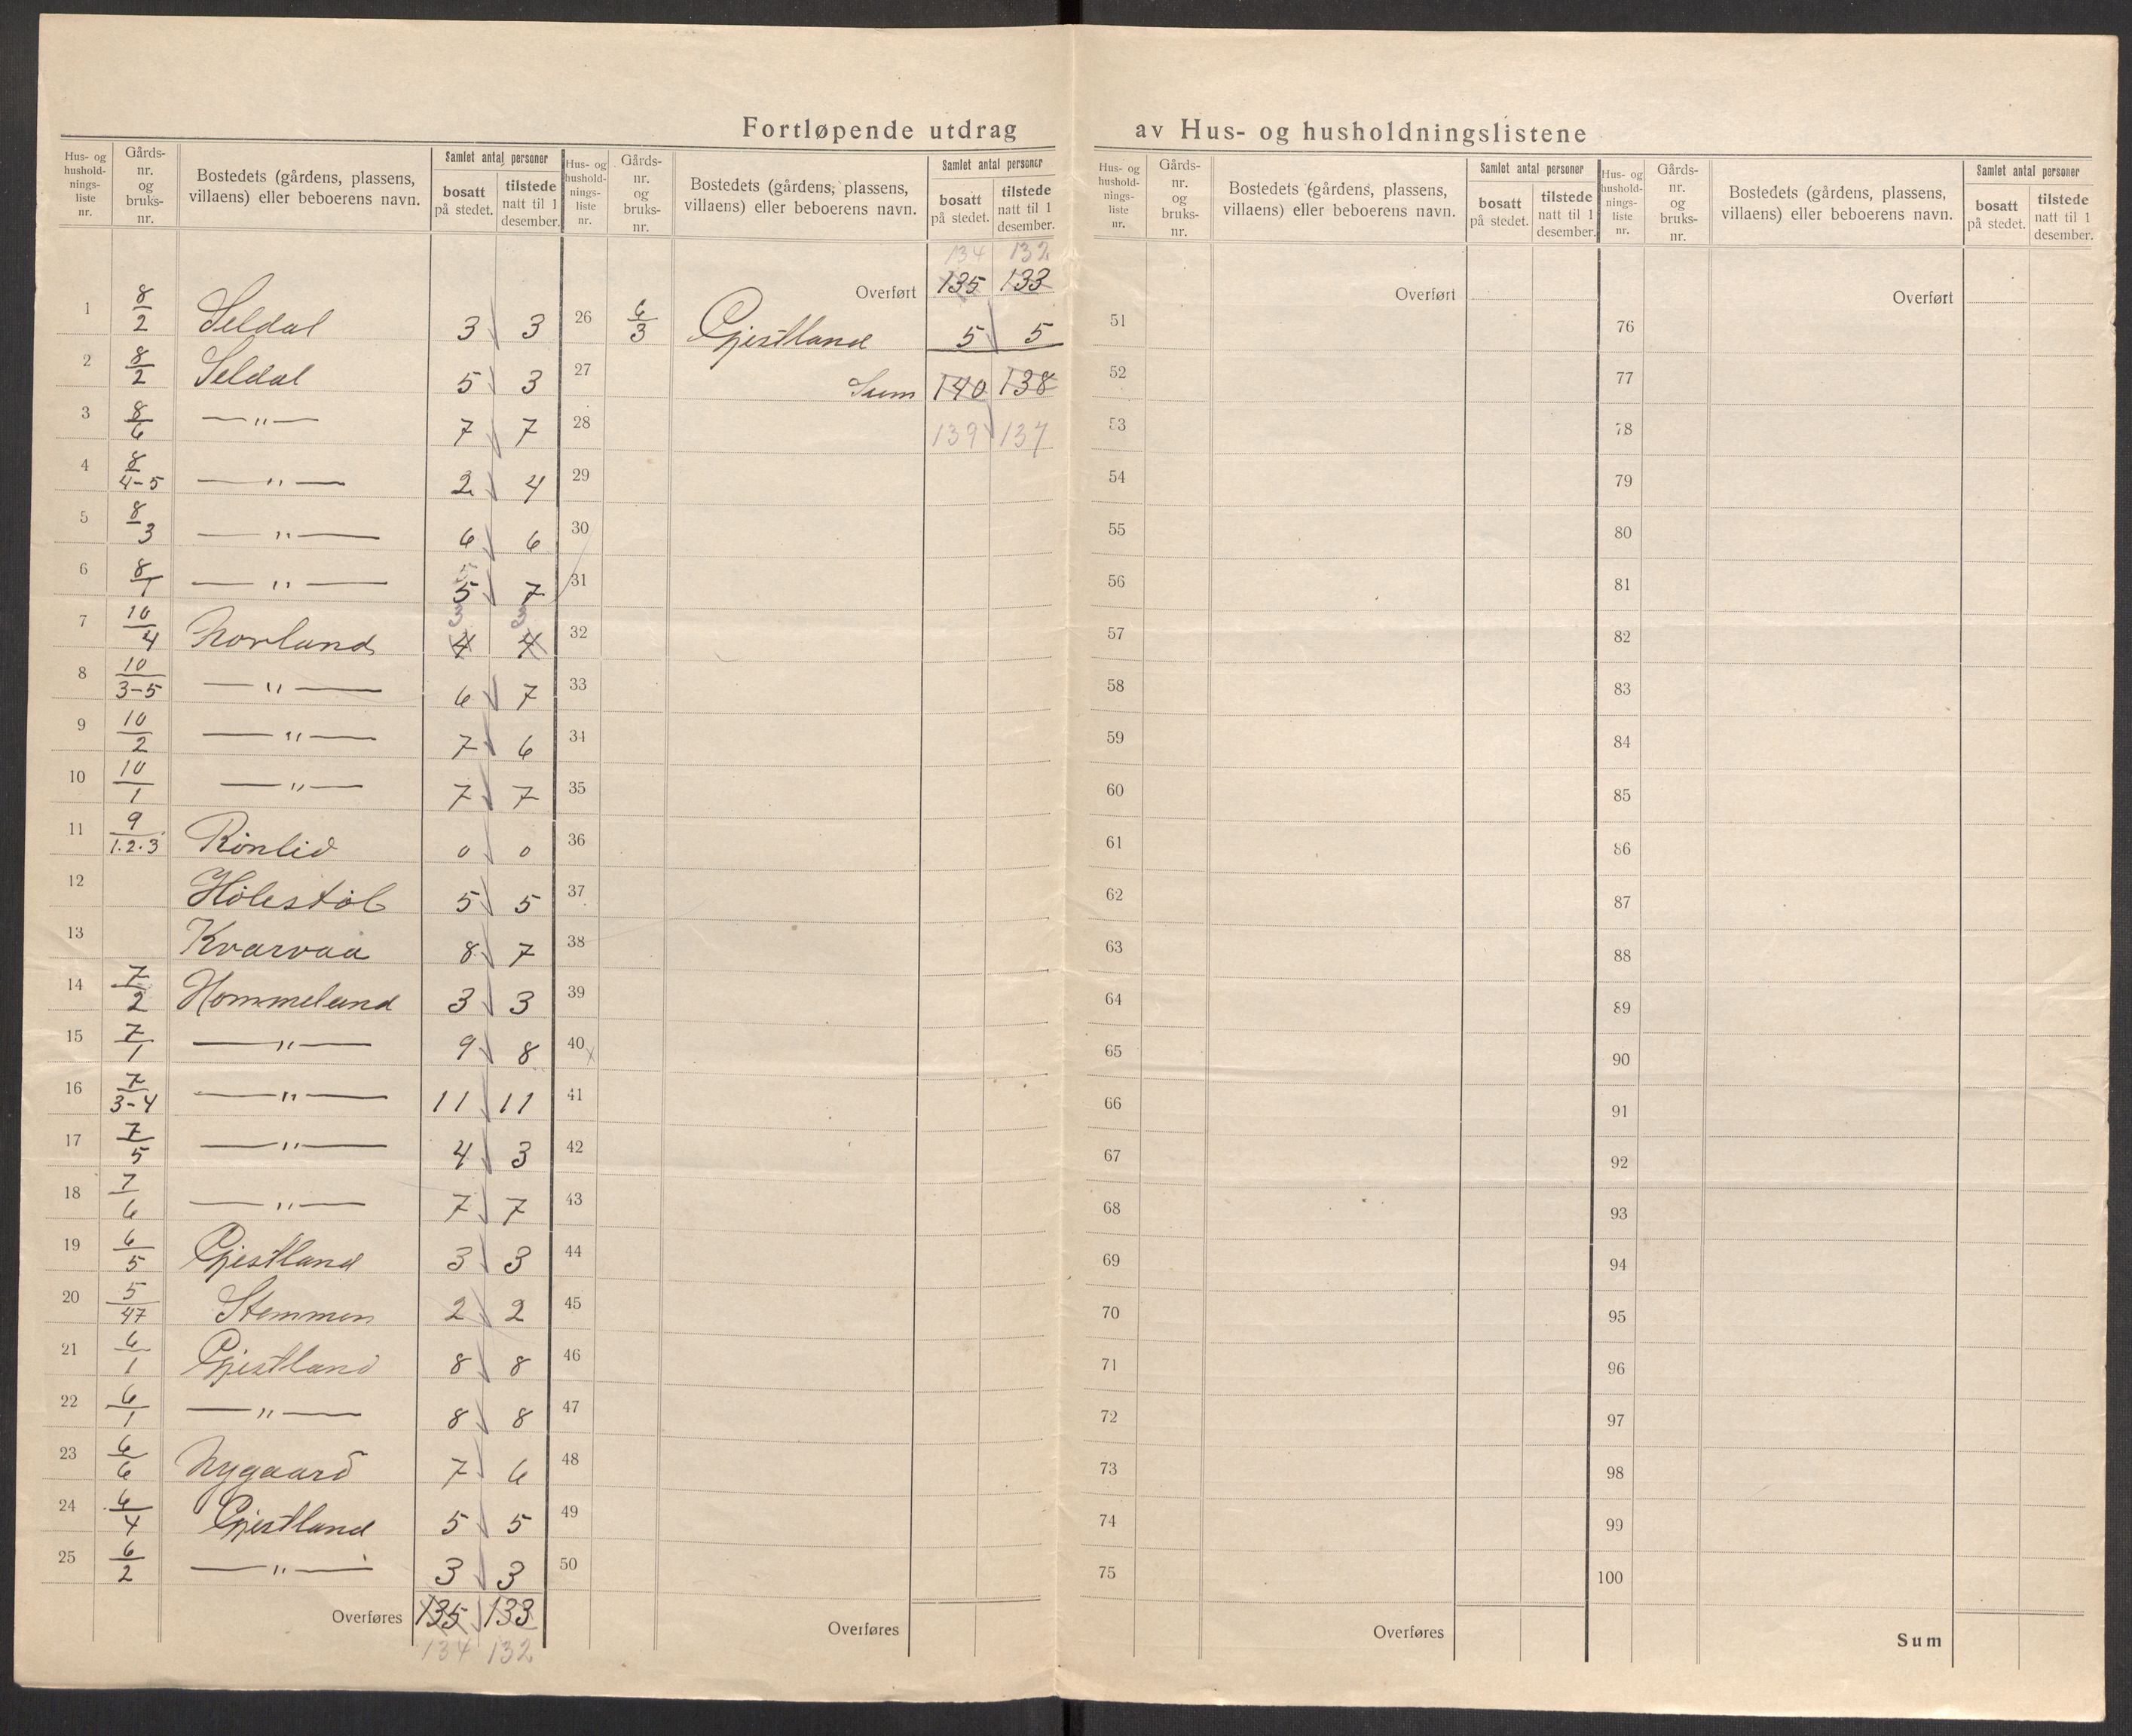 Fortløpende utdrag av Hus- og husholdningslistene
Hus- og husholdnings-liste nr. | Gårds-nr. og bruks-nr. | Bostedets (gårdens, plassens, villaens) eller beboerens navn. | Samlet antal personer | bosatt på stedet. | tilstede natt til 1 desember.
1 8/2 Seldal 3 3
2 8/2 Seldal 5 3
3 8/6 — " — 7 7
4 8/4-5 — " — 2 4
5 8/3 — " — 6 6
6 8/1 — " — 5 7
7 10/4 Norland 4 4
8 10/3-5 — " — 6 7
9 10/2 — " — 7 6
10 10/1 — " — 7 7
11 9/1.2.3 Rönlid 0 0
12 Hölestöl 5 5
13 Kvarvaa 8 7
14 7/2 Hommeland 3 3
15 7/1 — " — 9 8
16 7/3-4 — " — 11 11
17 7/5 — " — 4 3
18 7/6 — " — 7 7
19 6/5 Gjestland 3 3
20 5/47 Stemmen 2 2
21 6/1 Gjestland 8 8
22 6/1 — " — 8 8
23 6/6 Nygaard 7 6
24 6/4 Gjestland 5 5
25 6/2 — " — 3 3
Overføres 135 133
134 132
Hus- og husholdnings-liste nr. | Gårds-nr. og bruks-nr. | Bostedets (gårdens, plassens, villaens) eller beboerens navn. | Samlet antal personer | bosatt på stedet. | tilstede natt til 1 desember.
134 132
Overført 135 133
26 6/3 Gjestland 5 5
27 Sum 140 138
28 139 137
29
30
31
32
33
34
35
36
37
38
39
40 x
41
42
43
44
45
46
47
48
49
50
Overføres
Hus- og husholdnings-liste nr. | Gårds-nr. og bruks-nr. | Bostedets (gårdens, plassens, villaens) eller beboerens navn. | Samlet antal personer | bosatt på stedet. | tilstede natt til 1 desember.
Overført
51
52
53
54
55
56
57
58
59
60
61
62
63
64
65
66
67
68
69
70
71
72
73
74
75
Overføres
Hus- og husholdnings-liste nr. | Gårds-nr. og bruks-nr. | Bostedets (gårdens, plassens, villaens) eller beboerens navn. | Samlet antal personer | bosatt på stedet. | tilstede natt til 1 desember.
Overført
76
77
78
79
80
81
82
83
84
85
86
87
88
89
90
91
92
93
94
95
96
97
98
99
100
Sum